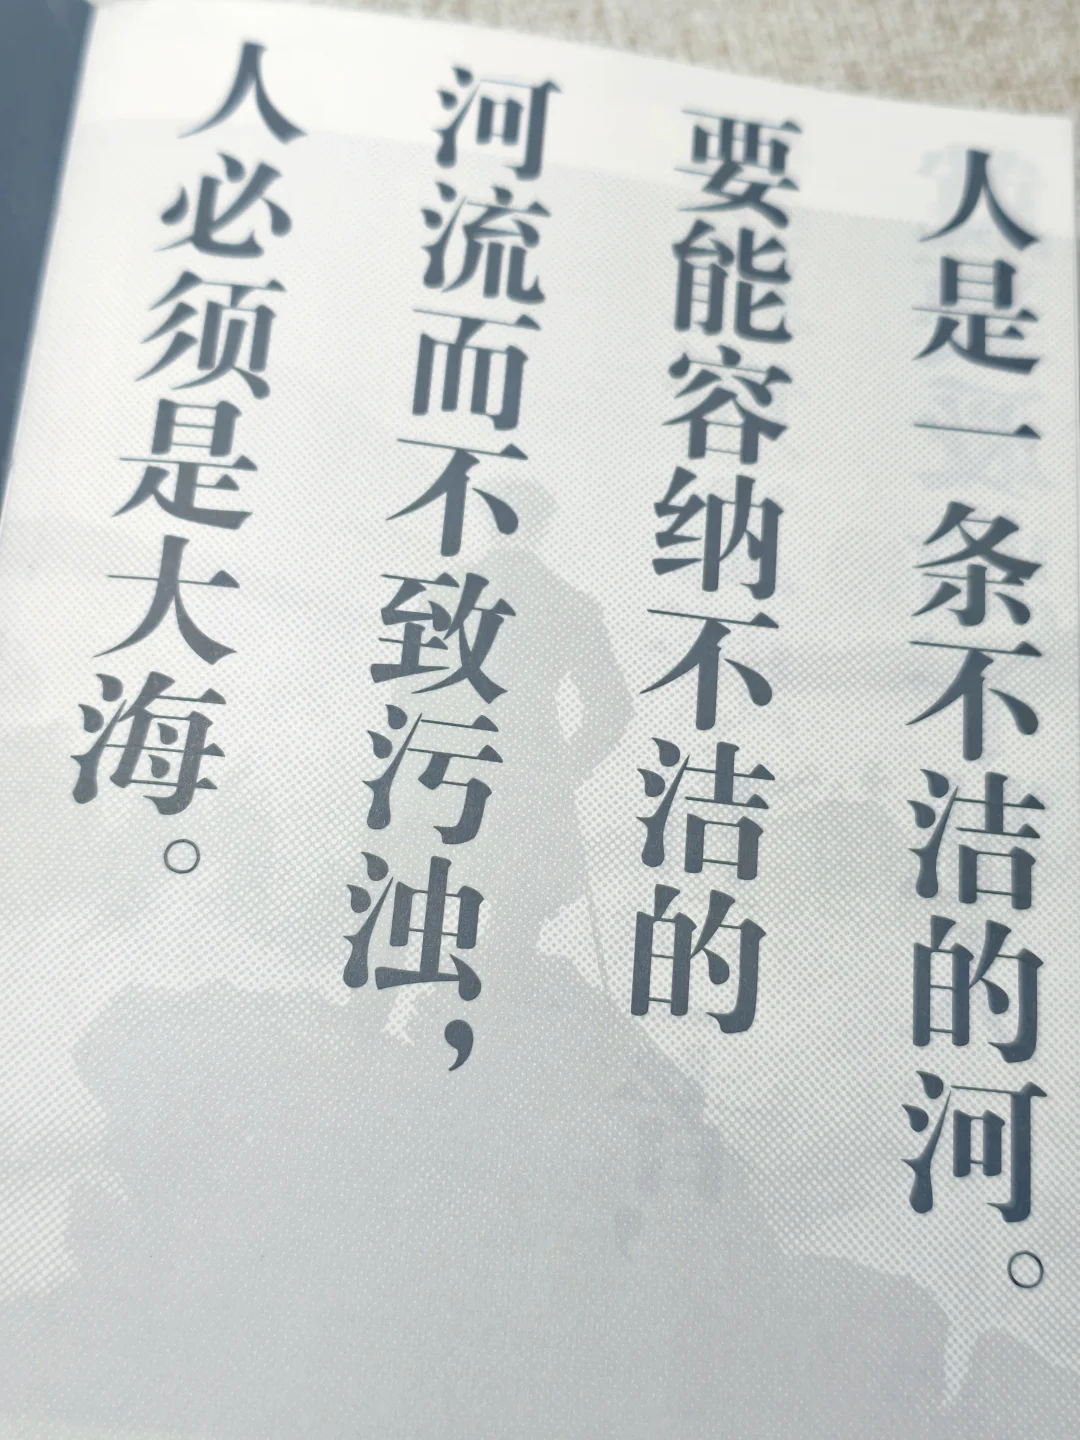 人是一条不洁的河。
要能容纳不洁的
河流而不致污浊，
人必须是大海。